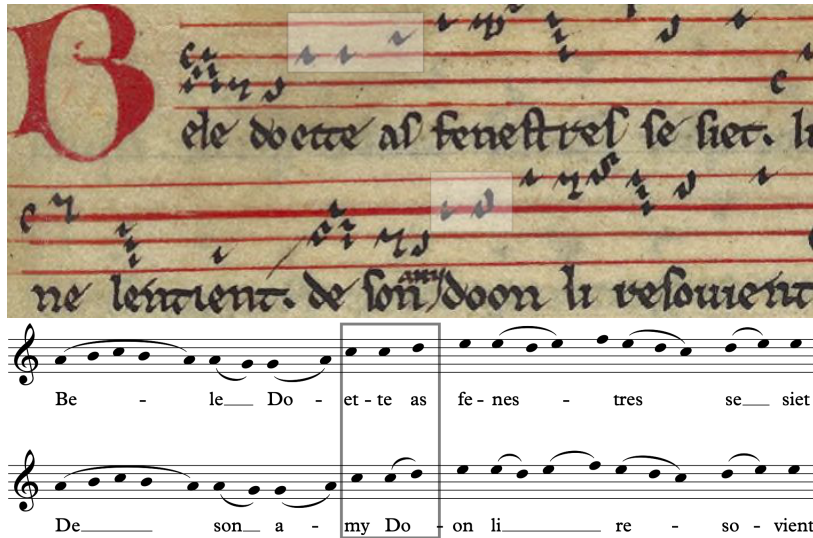 Bele doette as fenestres se siet. li
ne lentient. de son amy doon li resouient
Be - le Do - et - te as fe - nes - tres se siet
De son a - my Do - on li re - so - vient